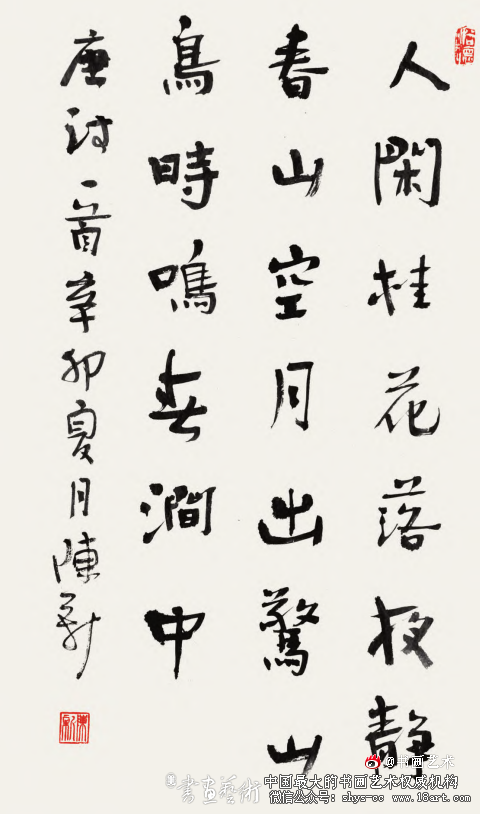 人閑桂花落夜静
春山空月出驚山
鳥時鳴春澗中
唐詩一首辛卯夏月陳新
陳新
@书画艺术
書畫藝術
中国最大的书画艺术权威机构
微信公众号：shys-cc www.18art.com